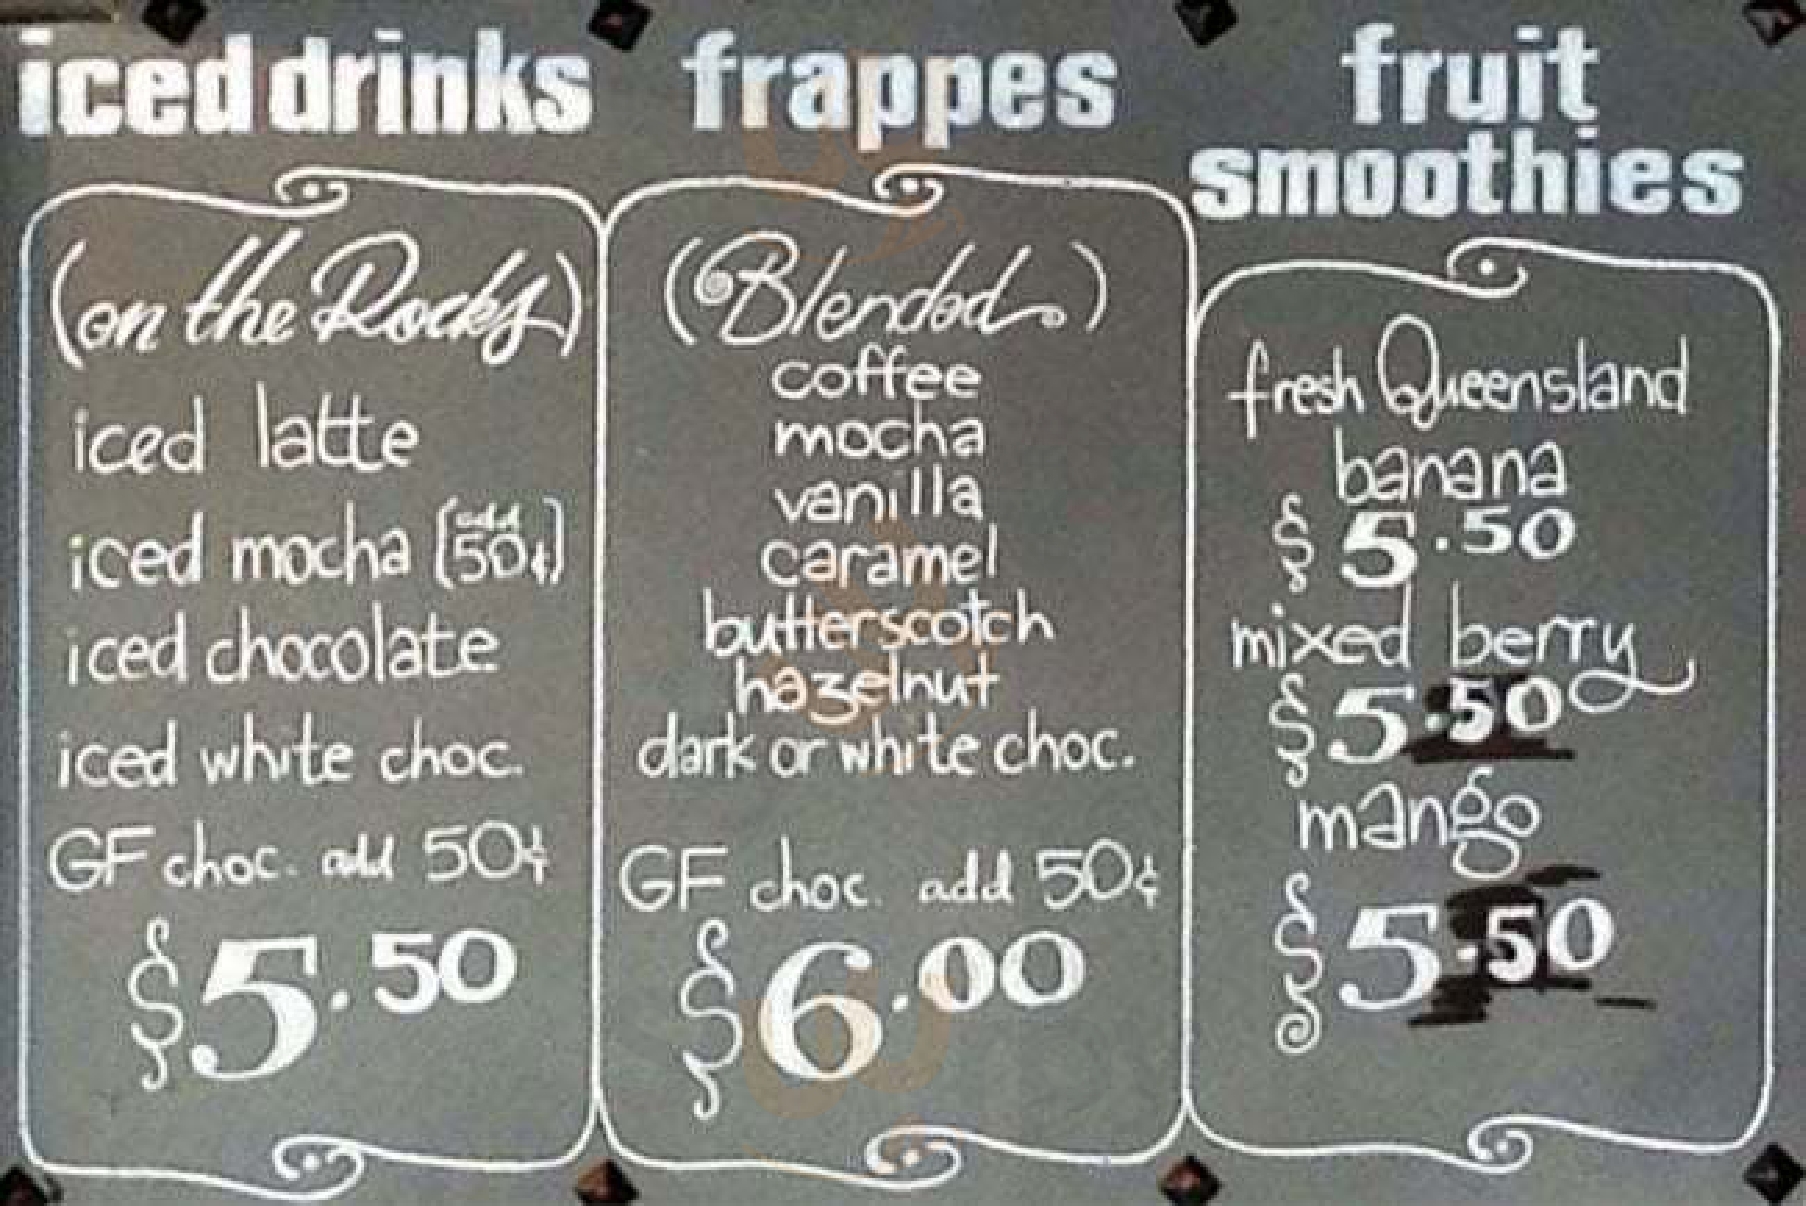 iced drinks
(on the Rocks)
iced latte
iced mocha (add 50¢)
iced chocolate
iced white choc.
GF choc. add 50¢
$5.50
frappes
(Blended)
coffee
mocha
vanilla
caramel
butterscotch
hazelnut
dark or white choc.
GF choc. add 50¢
$6.00
fruit
smoothies
fresh Queensland
banana
$5.50
mixed berry
$5.50
mango
$5.50